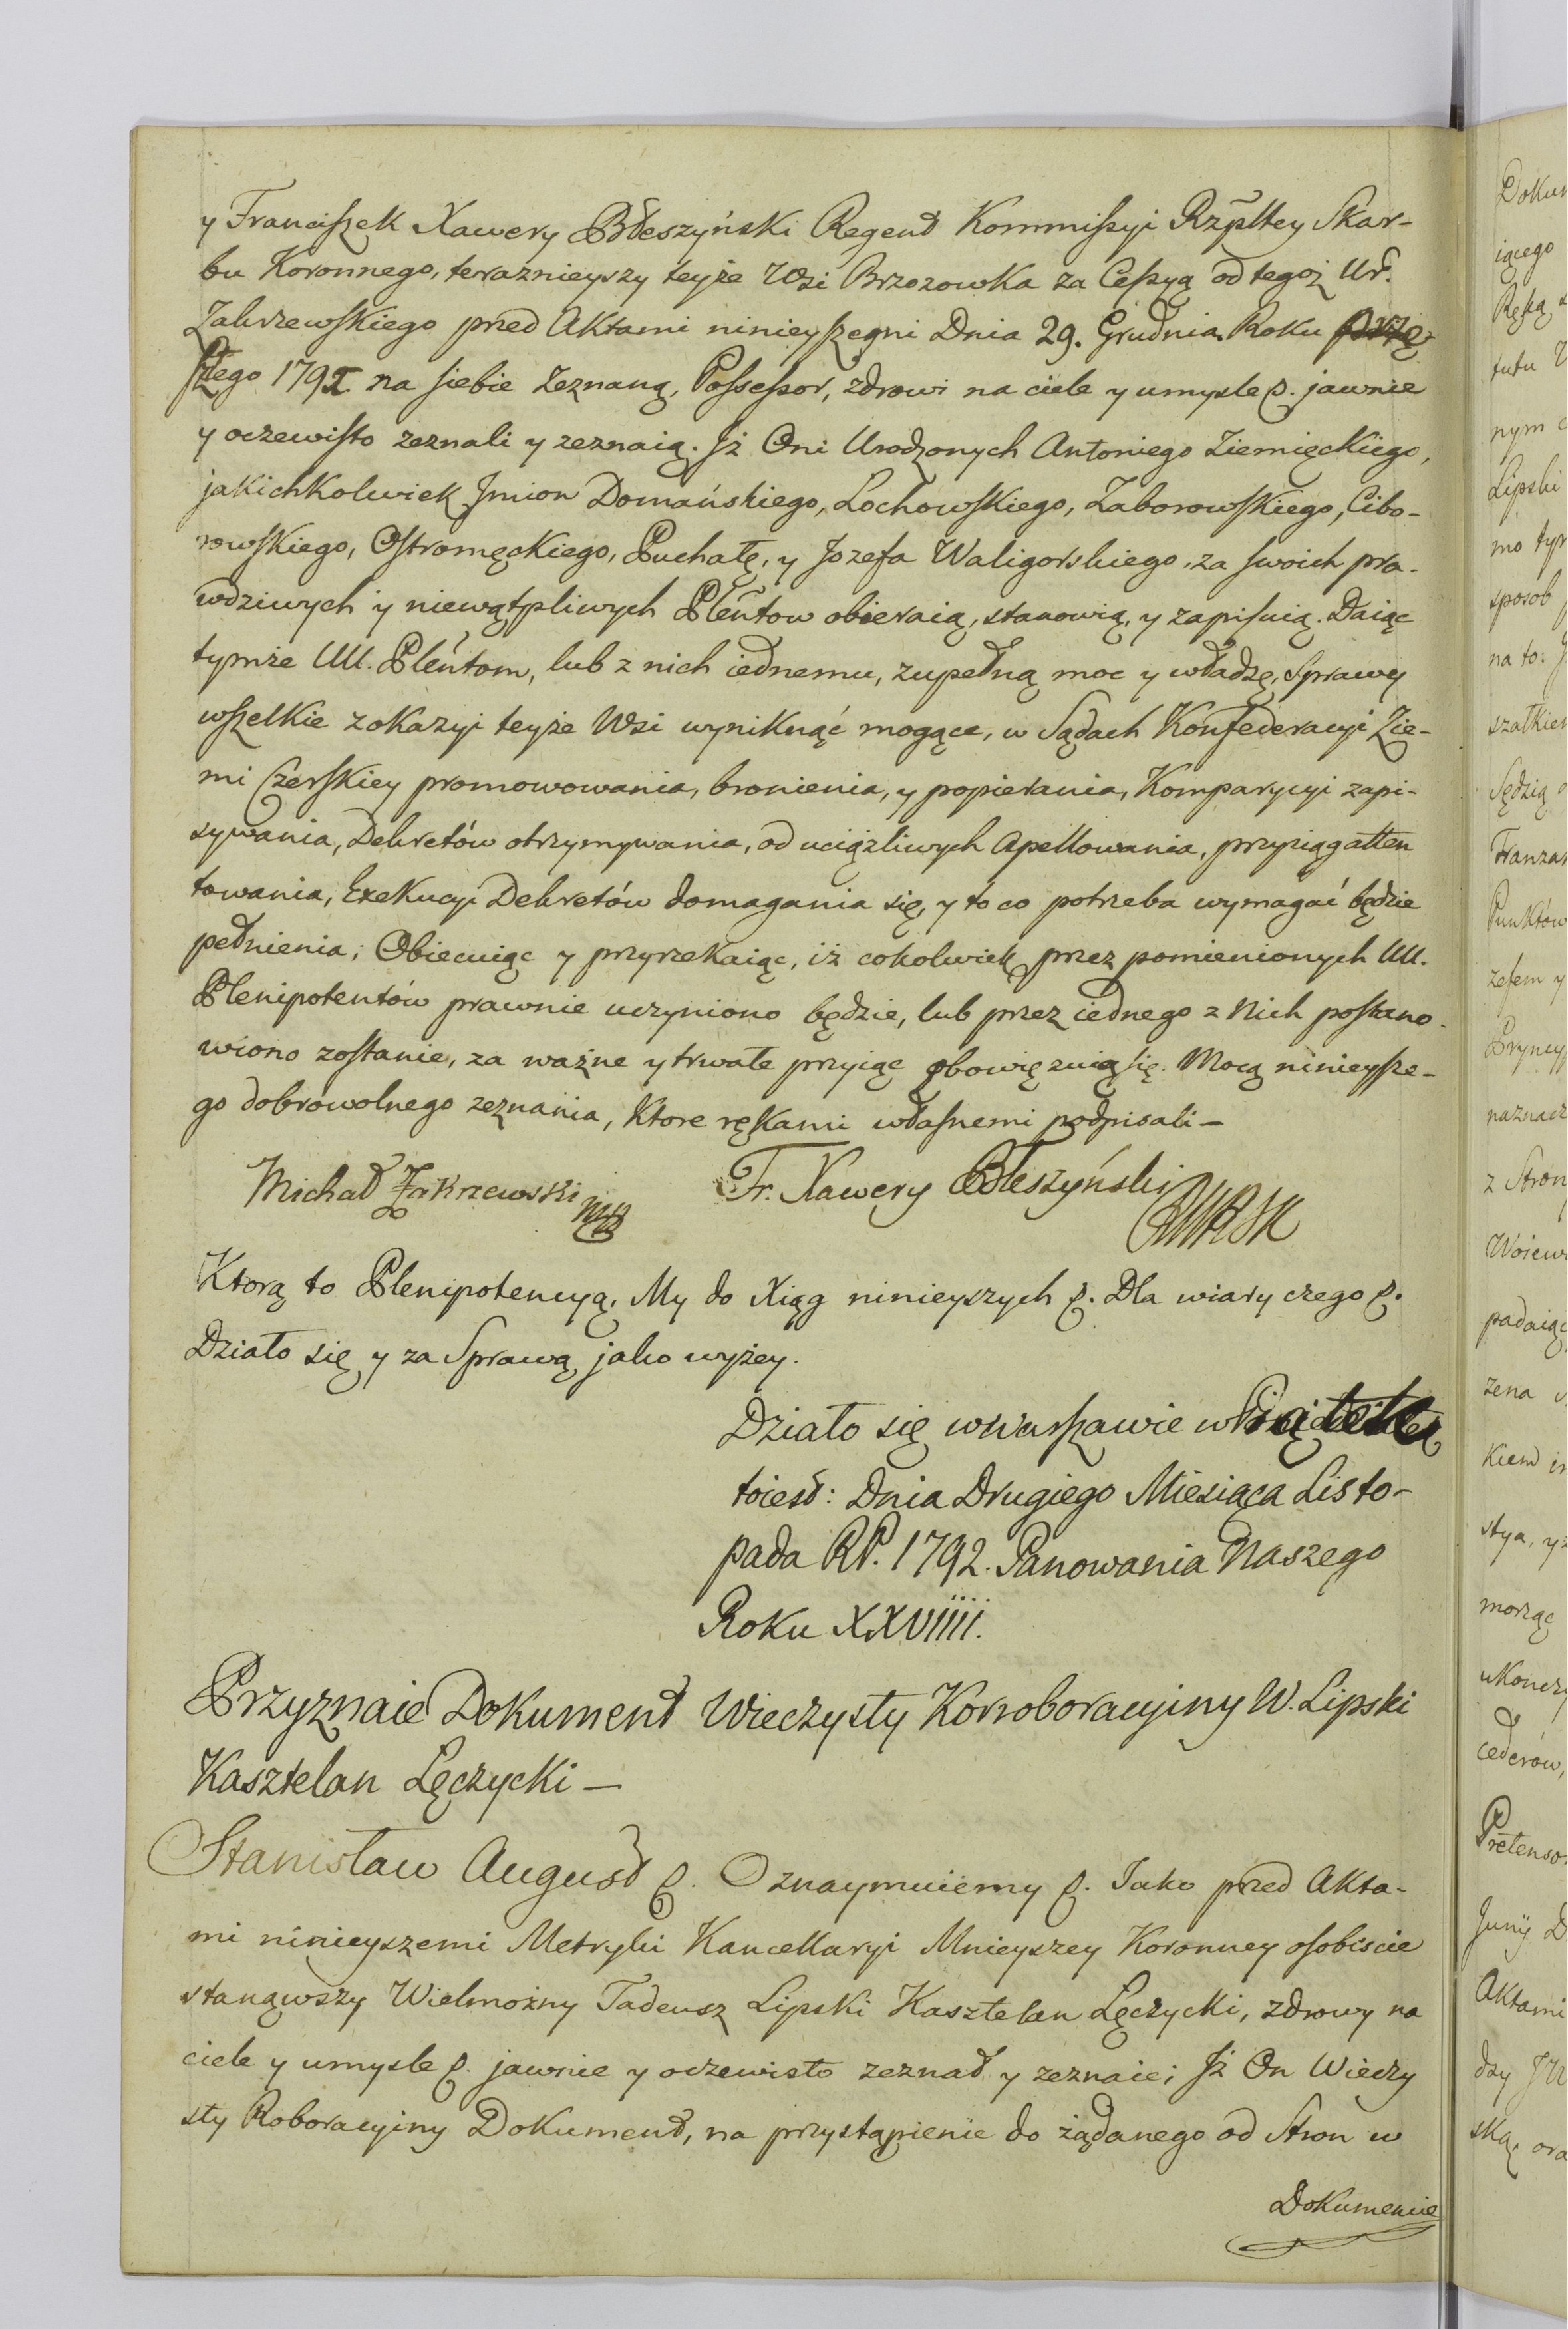 y Franciszek Xawery Błeszyński Regent Kommissyi Rzpltey Skar-
bu Koronnego, teraznieyszy teyże Wsi Brzozowka za Cessyą od tegoż Ur.
Zakrzewskiego przed Aktami ninieyszemi Dnia 29. Grudnia Roku
szłego 1791 na siebie zeznaną, Possessor, zdrowi na ciele y umysle p. jawnie
y oczewisto zeznali y zeznaią. Jż Oni Urodzonych Antoniego Ziemięckiego,
jakichkolwiek Jmion Domańskiego, Lochowskiego, Zaborowskiego, Cibo-
rowskiego, Ostromęckiego, Puchałę, y Jozefa Waligorskiego, za swoich pra-
wdziwych y niewątpliwych Plentow obieraią, stanowią, y zapisuią. Daiąc
tymże UU. Plentom, lub z nich iednemu, zupełną moc y władzę, Sprawy
wszelkie z okazyi teyże Wsi wyniknąć mogące, w Sądach Konfederacyi Zie-
mi Czerskiey promowowania, bronienia, y popierania, Komparycyi zapi-
sywania, Dekretów otrzymywania, od uciążliwych Apellowania, przysiąg atten
towania, Exekucyi Dekretów domagania się, y to co potrzeba wymagać będzie
pełnienia; Obiecuiąc y przyrzekaiąc, iż cokolwiek przez pomienionych UU.
Plenipotentów prawnie uczyniono będzie, lub przez iednego z Nich postano-
wiono zostanie, za ważne y trwałe przyiąć obowięzuią się. Mocą ninieysze-
go dobrowolnego zeznania, Ktore rękami własnemi podpisali -
Michał Zakrzewski mp Fr. Xawery Błeszyński
Ktorą to Plenipotencyą, My do Xiąg ninieyszych p. Dla wiary czego p.
Działo się y za Sprawą jako wyżey.
Działo się w Warszawie w Piątek
toiest: Dnia Drugiego Miesiąca Listo-
pada RP. 1792. Panowania Naszego
Roku XXVIIII.
Przyznaie Dokument Wieczysty Korroboracyiny W. Lipski
Kasztelan Lęczycki -
Stanisław August p. Oznaymuiemy p. Jako przed Akta-
mi ninieyszemi Metryki Kancellaryi Mnieyszey Koronney osobiscie
stanąwszy Wielmożny Tadeusz Lipski Kasztelan Lęczycki, zdrowy na
ciele y umysle p. jawnie y oczewisto zeznał y zeznaie; Jż On Wieczy
sty Roboracyiny Dokument, na przystąpienie do żądanego od Stron w
Dokumencie